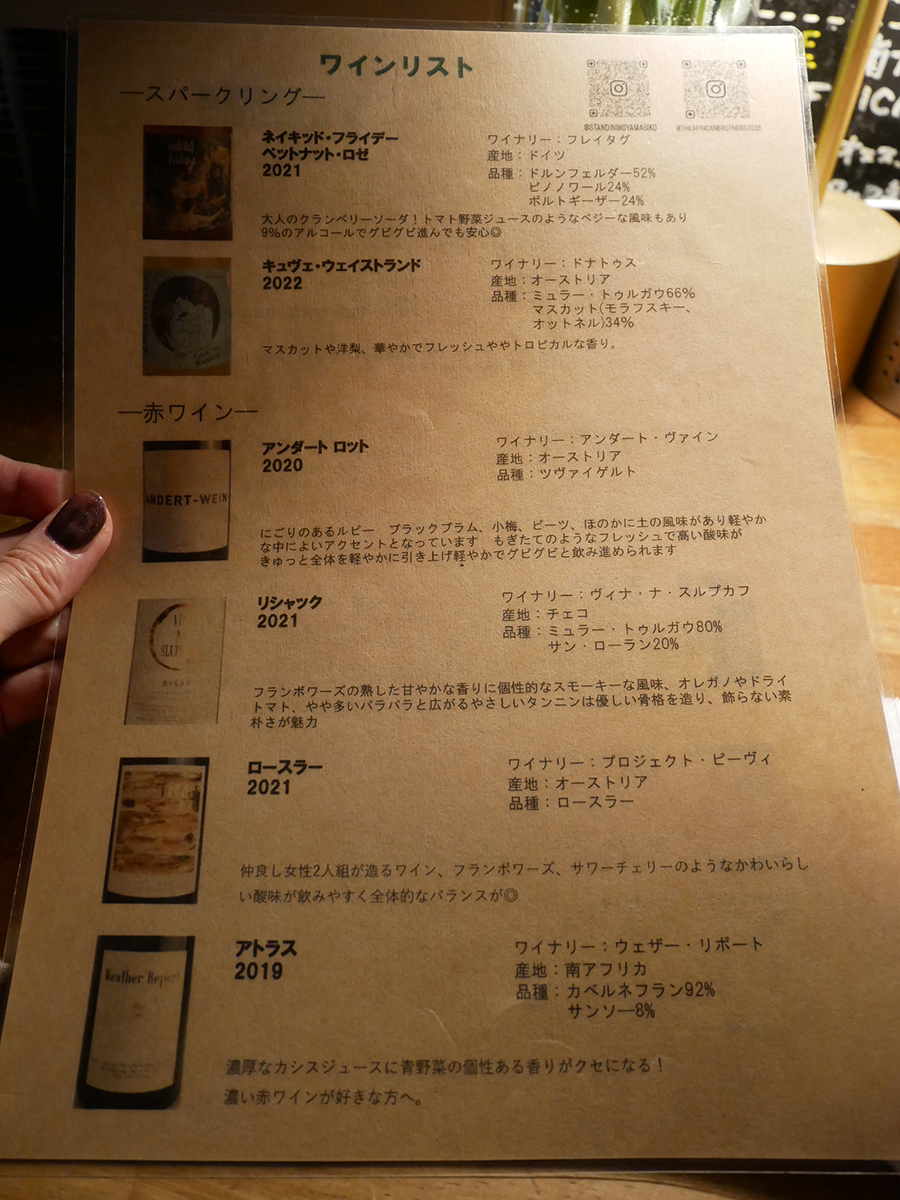 ワインリスト
@STANDININGYAMABIKO
@THEAFRICANBROTHERS2018
―スパークリング―
ネイキッド・フライデー
ペットナット・ロゼ
2021
ワイナリー：フレイタグ
産地：ドイツ
品種：ドルンフェルダー52%
ピノノワール24%
ポルトギーザー24%
大人のクランベリーソーダ！トマト野菜ジュースのようなベジーな風味もあり
9%のアルコールでグビグビ進んでも安心◎
キュヴェ・ウェイストランド
2022
ワイナリー：ドナトゥス
産地：オーストリア
品種：ミュラー・トゥルガウ66%
マスカット(モラフスキー、
オットネル)34%
マスカットや洋梨、華やかでフレッシュややトロピカルな香り。
―赤ワイン―
ANDERT-WEIN
アンダート ロット
2020
ワイナリー：アンダート・ヴァイン
産地：オーストリア
品種：ツヴァイゲルト
にごりのあるルビー　ブラックプラム、小梅、ビーツ、ほのかに土の風味があり軽やか
な中によいアクセントとなっています　もぎたてのようなフレッシュで高い酸味が
きゅっと全体を軽やかに引き上げ軽やかでグビグビと飲み進められます
リシャック
2021
ワイナリー：ヴィナ・ナ・スルプカフ
産地：チェコ
品種：ミュラー・トゥルガウ80%
サン・ローラン20%
フランボワーズの熟した甘やかな香りに個性的なスモーキーな風味、オレガノやドライ
トマト、やや多いパラパラと広がるやさしいタンニンは優しい骨格を造り、飾らない素
朴さが魅力
ロースラー
2021
ワイナリー：プロジェクト・ピーヴィ
産地：オーストリア
品種：ロースラー
仲良し女性2人組が造るワイン、フランボワーズ、サワーチェリーのようなかわいらし
い酸味が飲みやすく全体的なバランスが◎
Weather Report
アトラス
2019
ワイナリー：ウェザー・リポート
産地：南アフリカ
品種：カベルネフラン92%
サンソー8%
濃厚なカシスジュースに青野菜の個性ある香りがクセになる！
濃い赤ワインが好きな方へ。